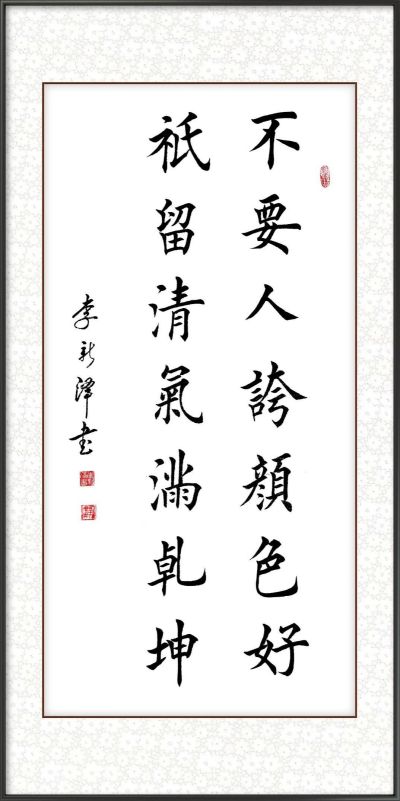 不要人誇顔色好
祇留清氣滿乾坤
李新澤書